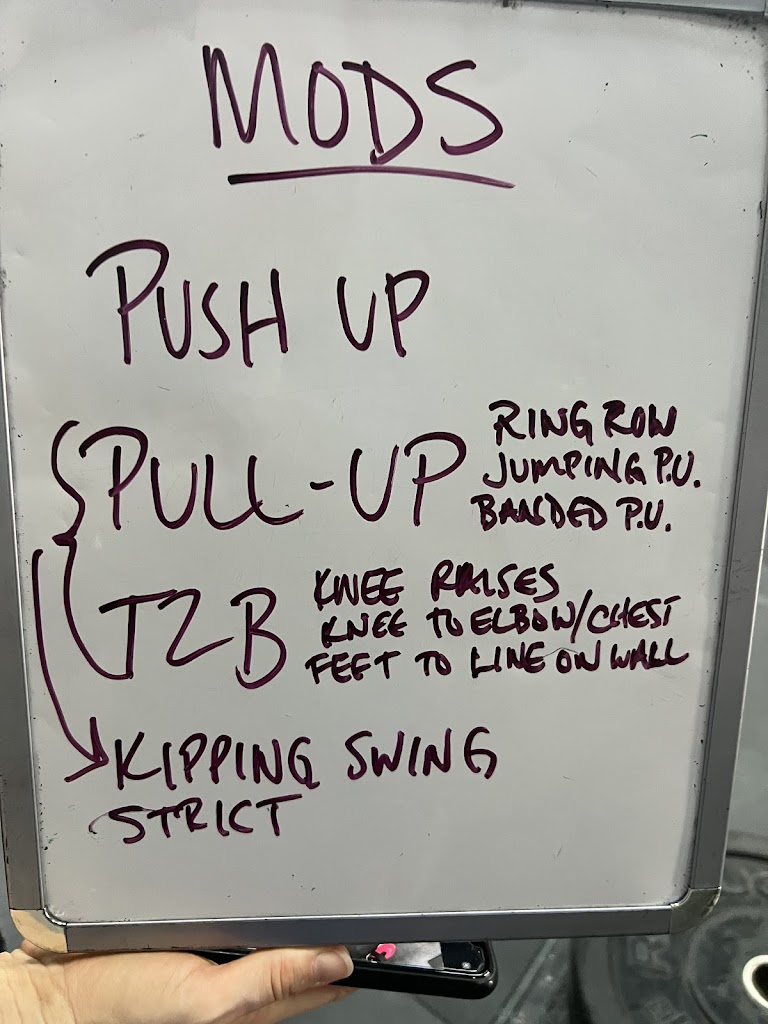 MODS
PUSH UP
PULL-UP
RING ROW
JUMPING P.U.
BANDED P.U.
T2B
KNEE RAISES
KNEE TO ELBOW/CHEST
FEET TO LINE ON WALL
KIPPING SWING
STRICT